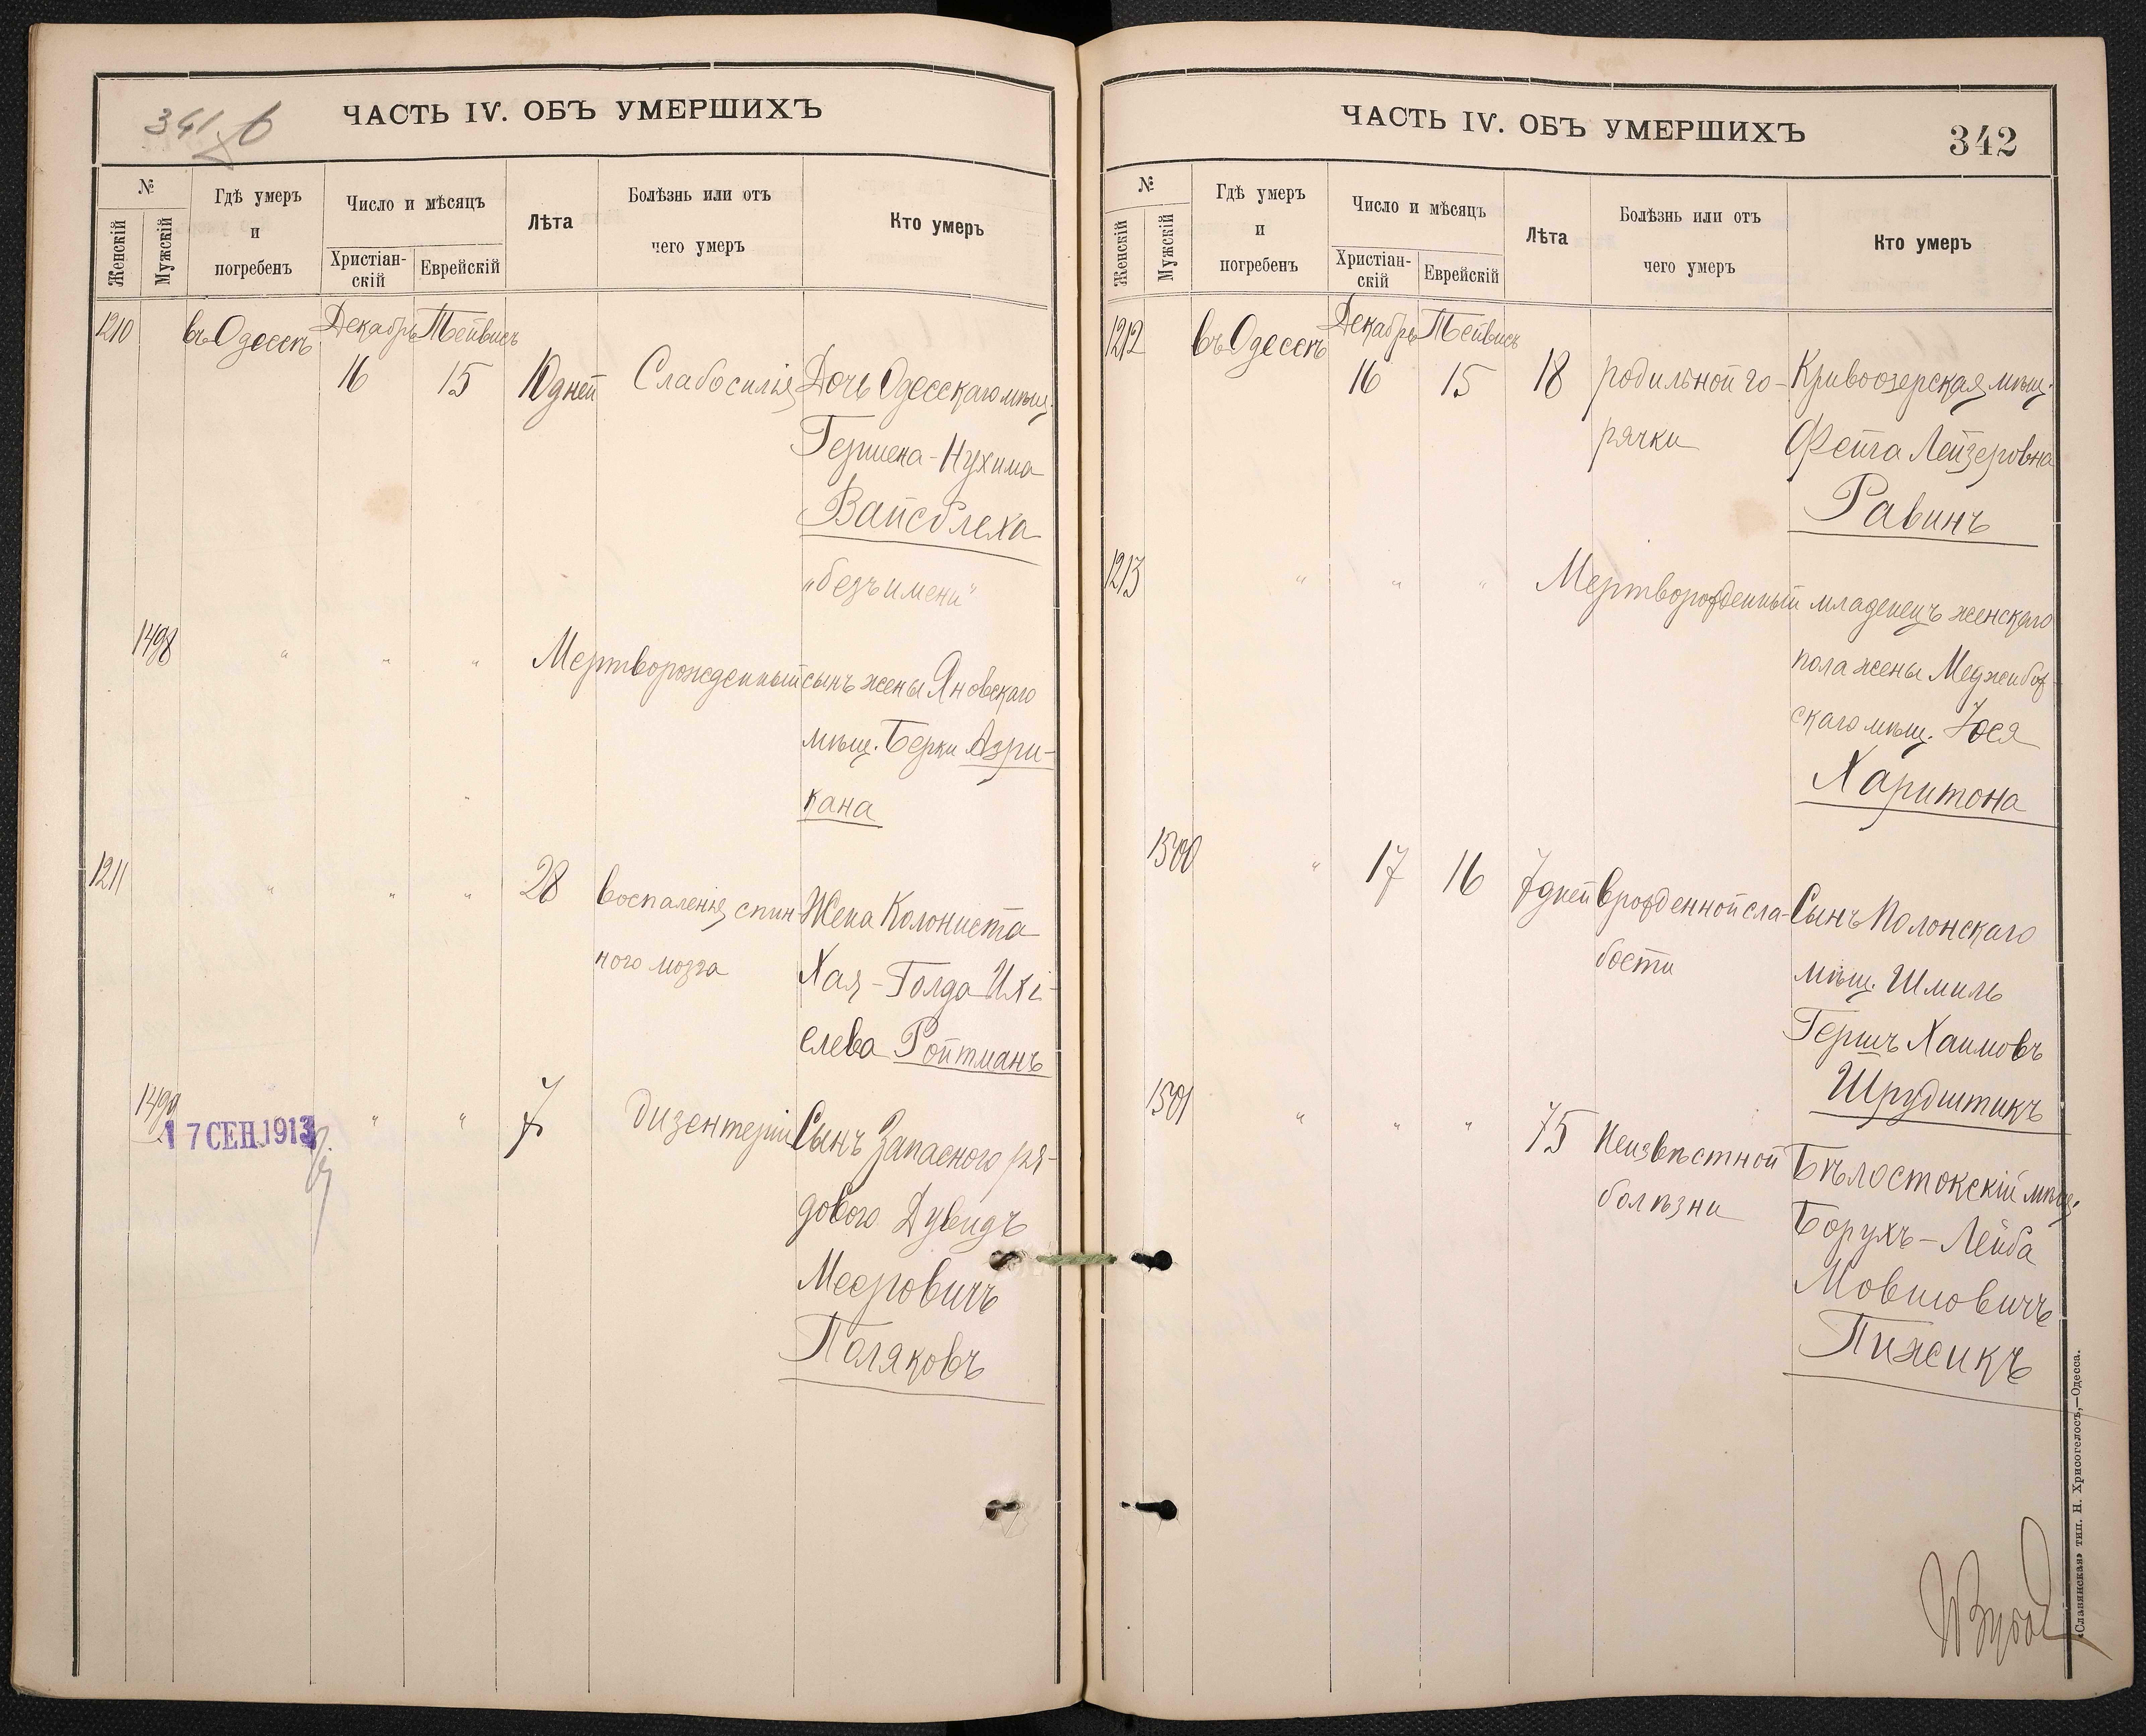 341 б
ЧАСТЬ IV. ОБЪ УМЕРШИХЪ
№
Женскій
Мужскій
Гдѣ умеръ
и
погребенъ
Число и мѣсяцъ
Христіан-
скій
Еврейскій
Лѣта
Болѣзнь или отъ
чего умеръ
Кто умеръ
1210 въ Одессѣ Декабрь Тейвисъ
16 15 10 дней Слабосилія Дочь Одесскаго мѣщ.
Гершена-Нухима
Вайсблеха
„безъ имени"
1498 " " " Мертворожденный сынъ жены Яновскаго
мѣщ. Берки Азри-
кана
1211 " " " 28 воспаленія спин- Жена Колониста
ного мозга Хая-Голда Ихі-
елева Ройтманъ
1499 " " 7 дизентеріи Сынъ Запасного ря-
17 СЕН. 1913
дового Дувидъ
Мееровичъ
Поляковъ
ЧАСТЬ IV. ОБЪ УМЕРШИХЪ
342
№
Женскій
Мужскій
Гдѣ умеръ
и
погребенъ
Число и мѣсяцъ
Христіан-
скій
Еврейскій
Лѣта
Болѣзнь или отъ
чего умеръ
Кто умеръ
1212 въ Одессѣ Декабрь Тейвисъ
16 15 18 родильной го- Кривоозерская мѣщ.
рячки Фейга Лейзеровна
Равинъ
1213 " " " Мертворожденный младенецъ женскаго
пола жены Меджибож-
скаго мѣщ. Іося
Харитона
1500 " 17 16 7 дней врожденной сла- Сынъ Полонскаго
бости мѣщ. Шмиль
Гершъ Хаимовъ
Шрудштикъ
1501 " " " 75 Неизвѣстной Бѣлостокскій мѣщ.
болѣзни Борухъ-Лейба
Мовшовичъ
Пижикъ
«Славянская» тип. Н. Хрисогелосъ,—Одесса.